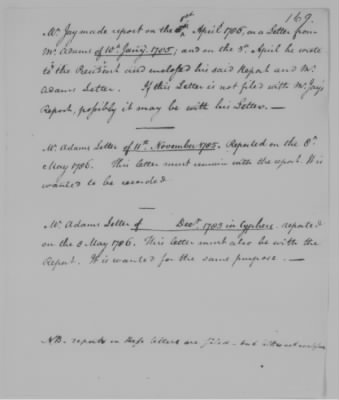 169.
Mr. Jay made report on the April 1785, on a Letter from
Mr. Adams of 10th. Jany. 1785; and on the 3d. April he wrote
to the President and enclosed his said Report and Mr.
Adams Letter. If this Letter is not filed with Mr. Jays
Report, possibly it may be with his Letter. —
Mr. Adams Letter of 11th. November 1785. Reported on the 8th.
May 1786. This letter must remain with the report. It is
wanted to be recorded
Mr. Adams Letter of Decr. 1785 in Cyphers reported
on the 8 May 1786. This letter must also be with the
Report. It is wanted for the same purpose. —
NB. reports on these letters are filed — but